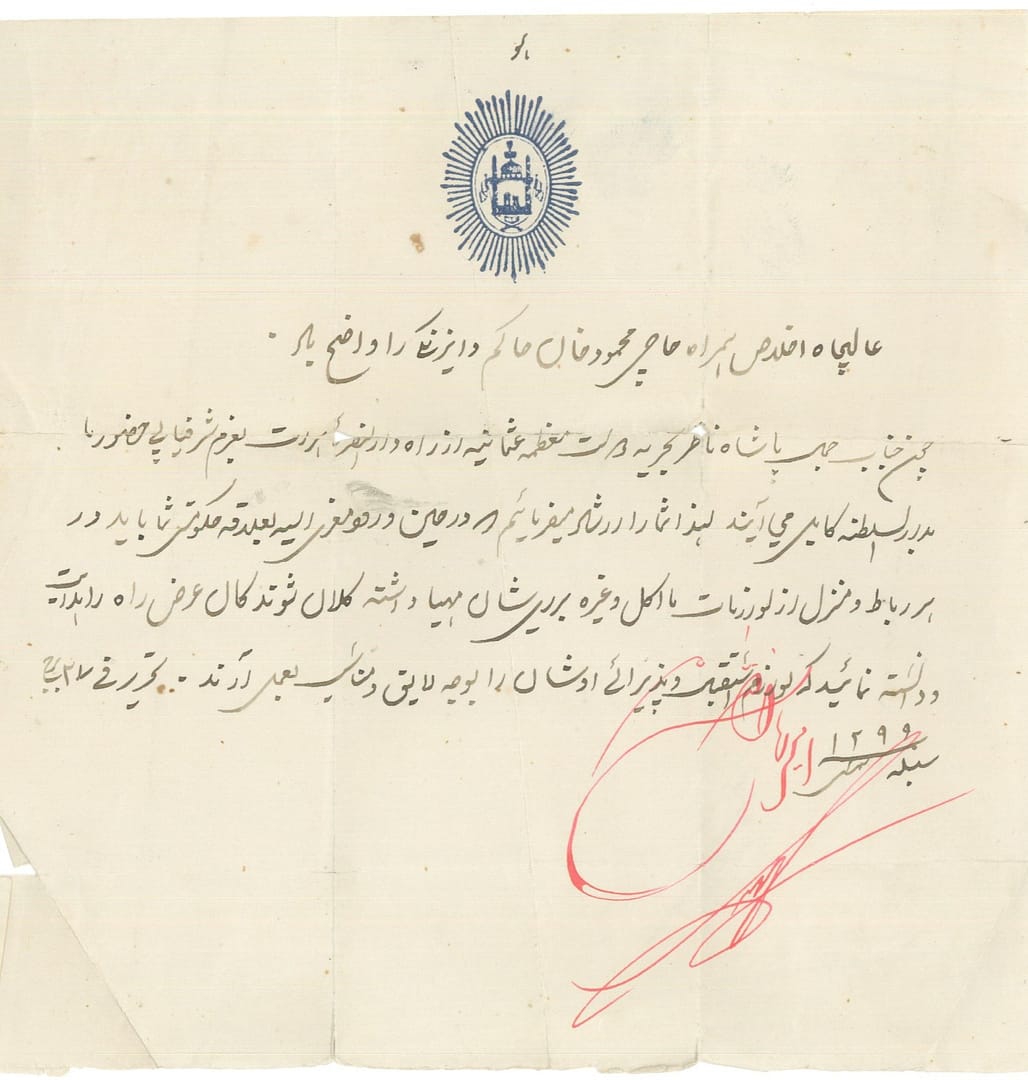 هو
عالیجاه اخلاص همراه حاجی محمود خان حاکم دایزنگی را واضح باد.
چون جناب جمال پاشاه ناظر بحریه دولت معظمه عثمانیه از راه دارالنصرة هرات بعزم شرفیابی حضور ما
بدارالسلطنه کابل می آیند لهذا شما را ارشاد میفرمائیم که در حین ورود معزی الیه بعلاقه حکومتی شما باید در
هر رباط و منزل از لوازمات ماکل و غیره برای شان مهیا داشته کلان شوندگان عرض راه را هدایت
دانسته نمائید که لوازم استقبال و پذیرائے اوشان را بوجه لایق و مناسب بعمل آرند. تحریر فی ۲۷ برج
سنبله ۱۲۹۹ شمسی